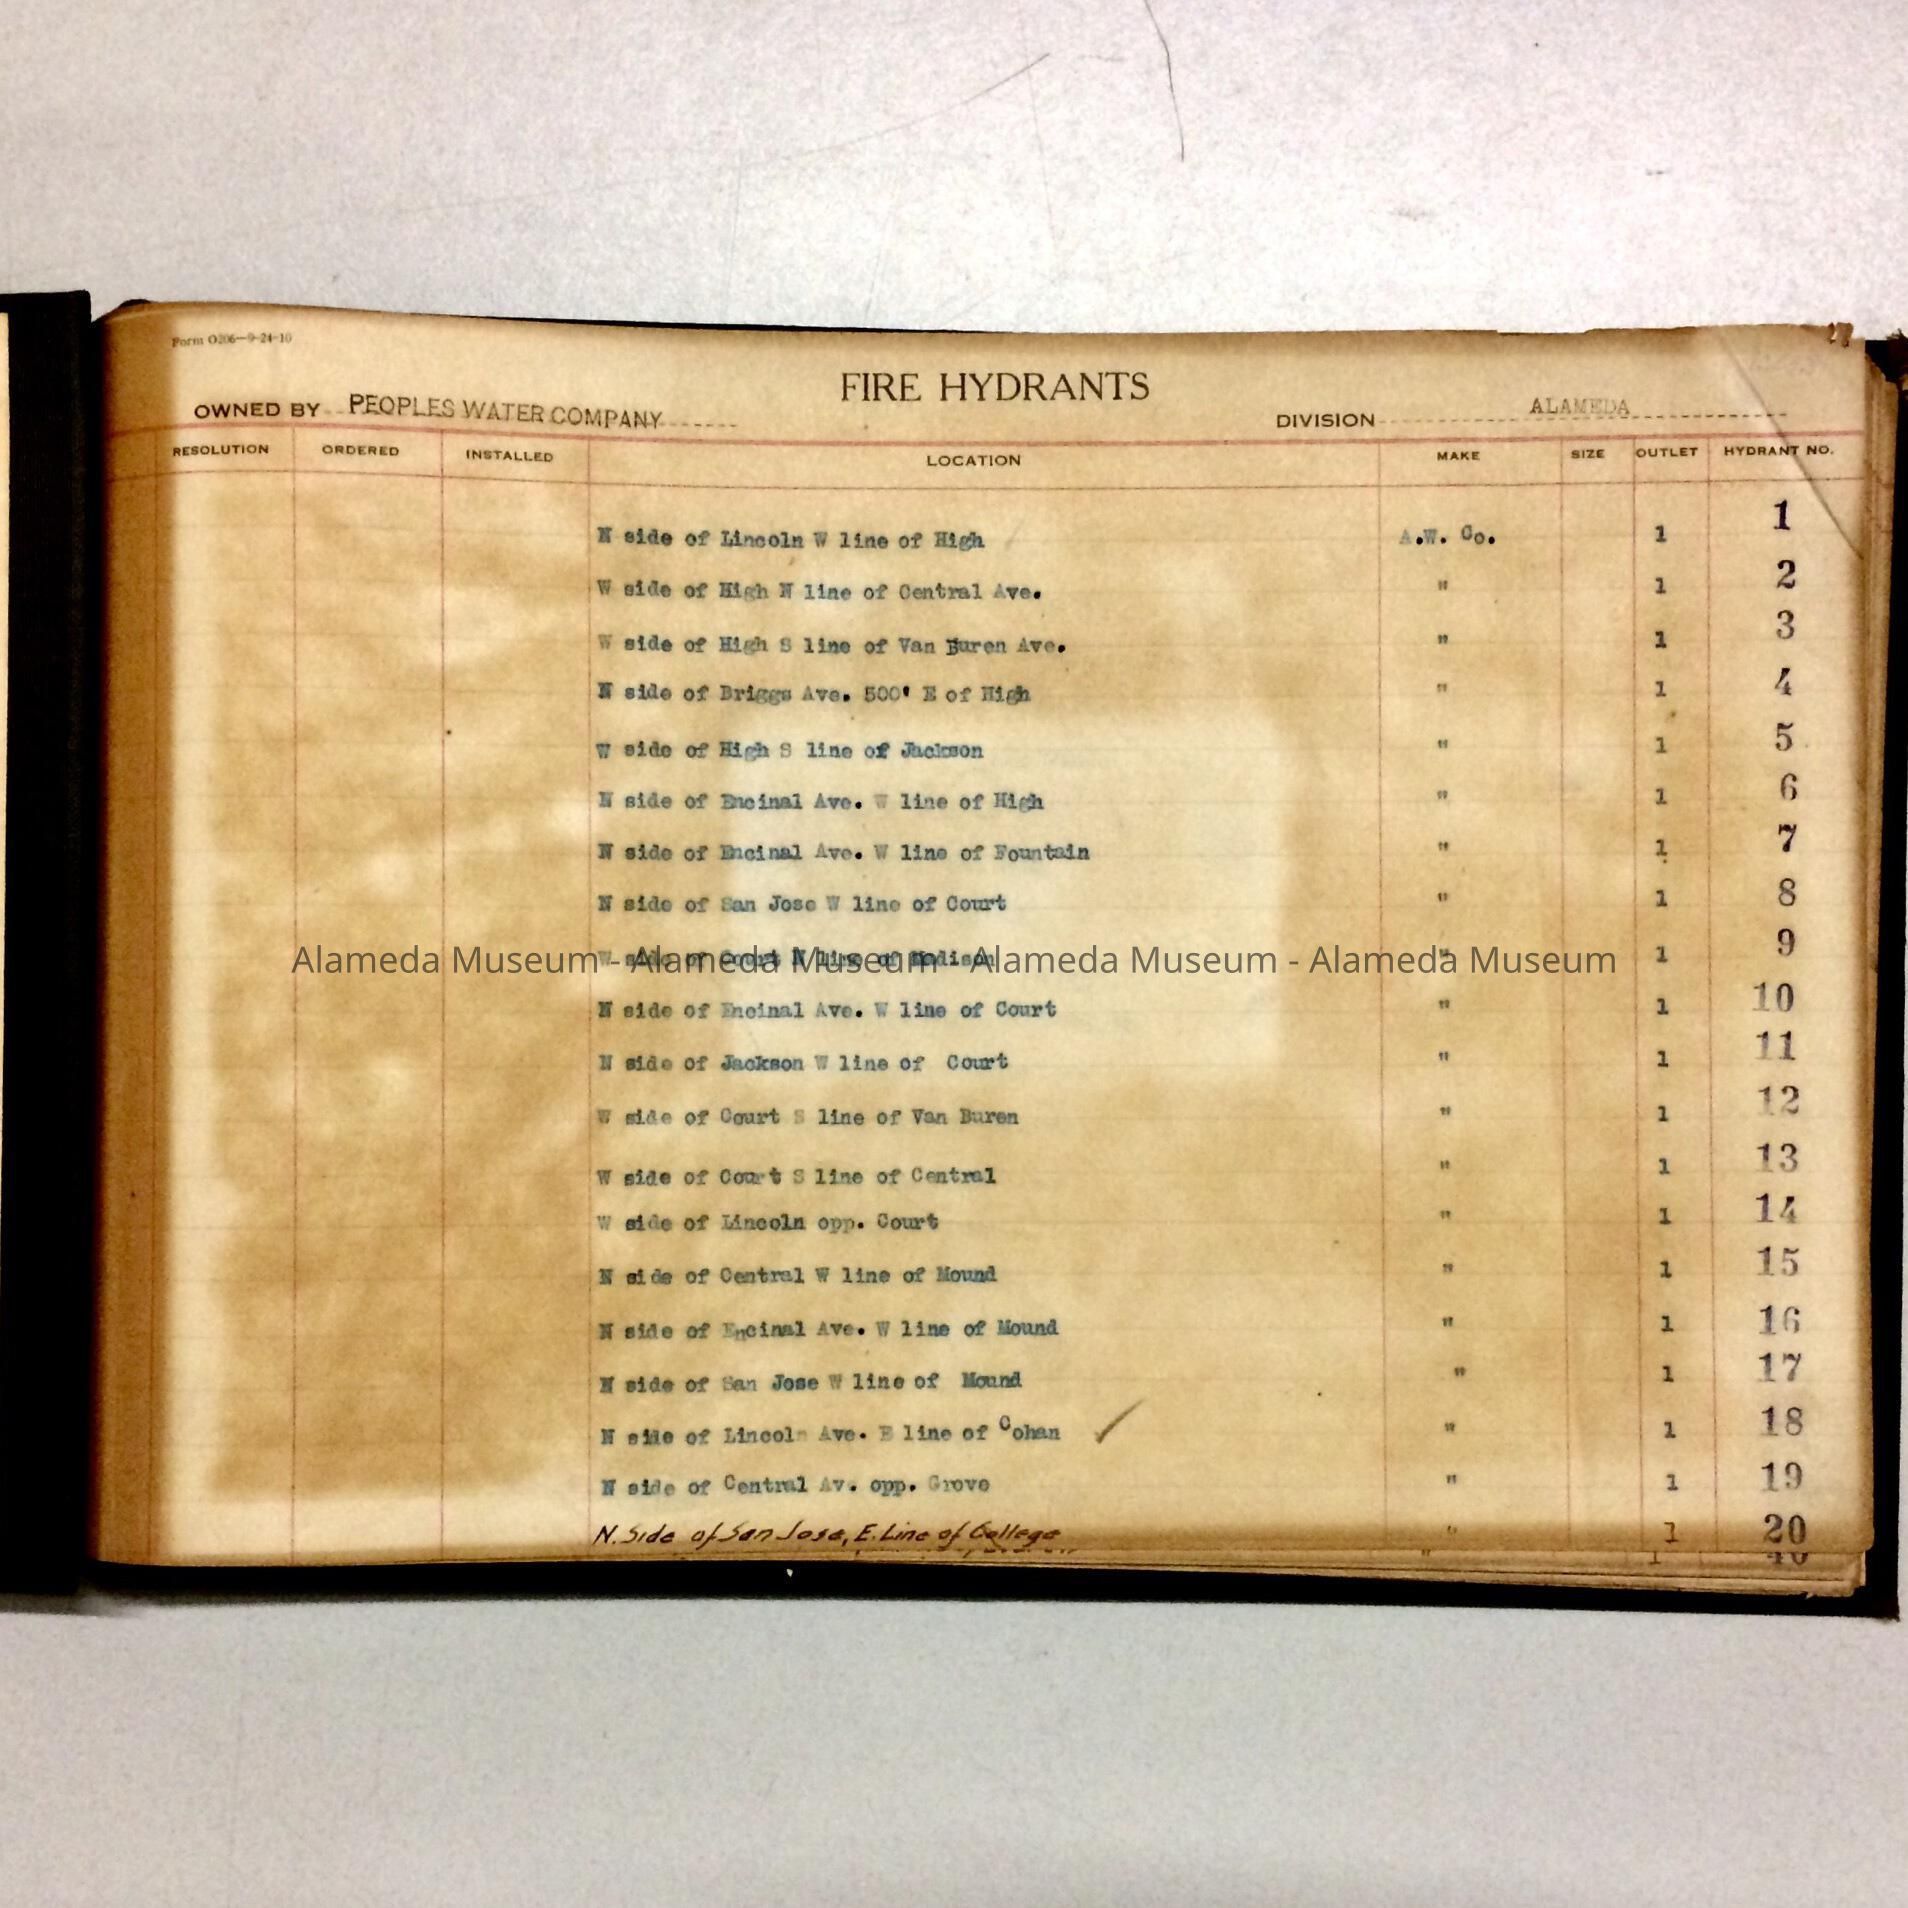 Form O206—9-24-10
FIRE HYDRANTS
OWNED BY PEOPLES WATER COMPANY DIVISION ALAMEDA
RESOLUTION ORDERED INSTALLED LOCATION MAKE SIZE OUTLET HYDRANT NO.
N side of Lincoln W line of High A.W. Co. 1 1
W side of High N line of Central Ave. " 1 2
W side of High S line of Van Buren Ave. " 1 3
N side of Briggs Ave. 500' E of High " 1 4
W side of High S line of Jackson " 1 5
N side of Encinal Ave. W line of High " 1 6
N side of Encinal Ave. W line of Fountain " 1 7
N side of San Jose W line of Court " 1 8
W side of Court N line of Madison " 1 9
Alameda Museum - Alameda Museum - Alameda Museum - Alameda Museum
N side of Encinal Ave. W line of Court " 1 10
N side of Jackson W line of Court " 1 11
W side of Court S line of Van Buren " 1 12
W side of Court S line of Central " 1 13
W side of Lincoln opp. Court " 1 14
N side of Central W line of Mound " 1 15
N side of Encinal Ave. W line of Mound " 1 16
N side of San Jose W line of Mound " 1 17
N side of Lincoln Ave. E line of Cohan ✓ " 1 18
N side of Central Av. opp. Grove " 1 19
N. Side of San Jose, E. Line of College " 1 20
" 1 40